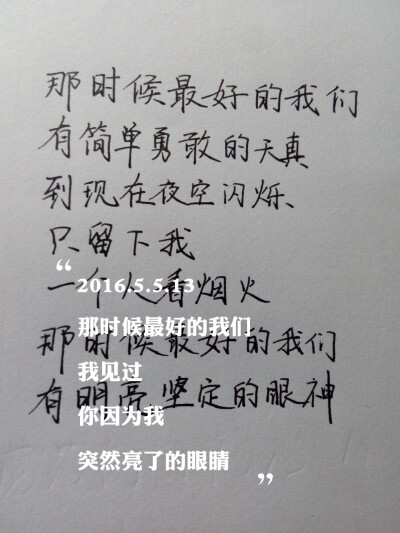 那时候最好的我们
有简单勇敢的天真
到现在夜空闪烁、
只留下我
一个人看烟火
那时候最好的我们
有明亮坚定的眼神
“
2016.5.5.13
那时候最好的我们
我见过
你因为我
突然亮了的眼睛
”